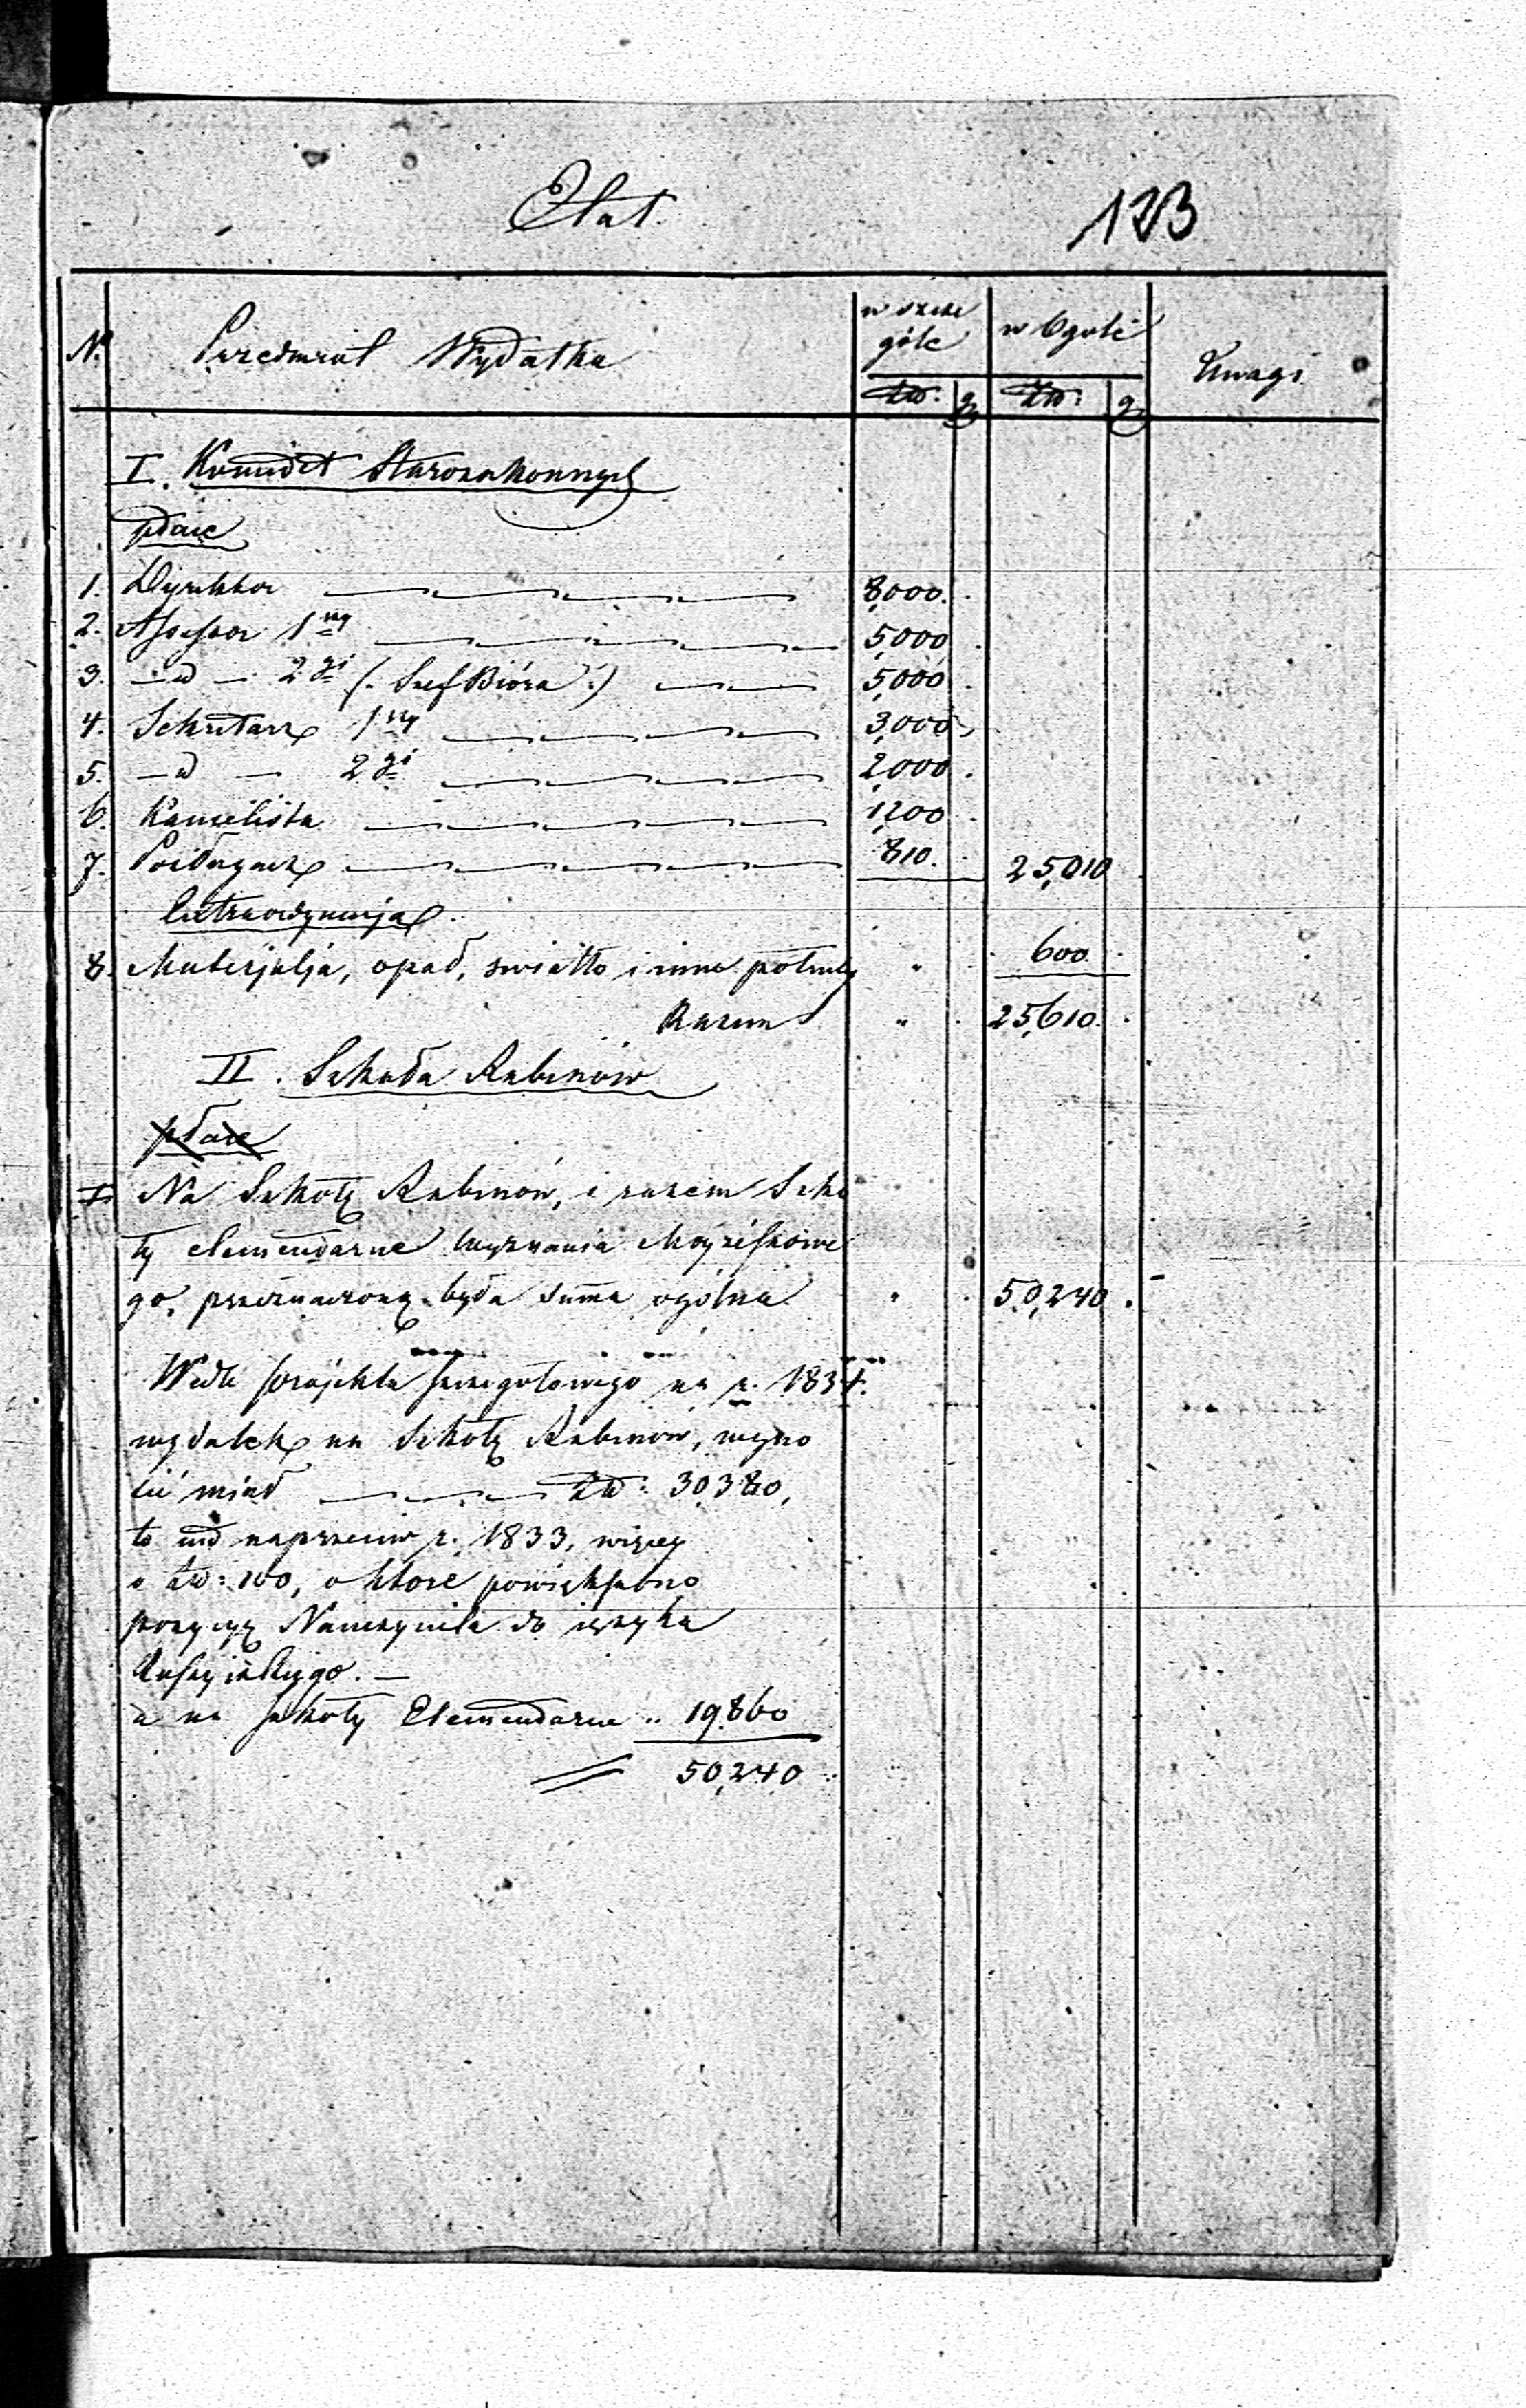 Etat.
123
N. Przedmiot Wydatku w szcze góle w Ogule Uwagi
Zł: g Zł: g
I. Komitet Starozakonnych
płace
1. Dyrektor 8,000.
2. Assessor 1szy 5,000
3. — d — 2gi (: Szef Bióra :) 5,000
4. Sekretarz 1szy 3,000
5. — d — 2gi 2,000
6. Kancelista 1,200
7. Posługacz 810. 25,010
Extraordynarja.
8. Materjalja, opał, swiatło i inne potrzeby " 600
Razem " 25,610.
II. Szkoła Rabinów
płace
I Na Szkołę Rabinów, i razem Szko
ły elementarne wyznania Mojżeszowe
go, przeznaczoną była summa ogólna " 50,240.
Wedle projektu szczegułowego na r. 1834.
wydatek na Szkołę Rabinów, wyno
sić miał Zł: 30,380,
to iest naprzeciw r. 1833, więcey
o Zł: 100, o które powiększono
pozycyę Nauczyciela do ięzyka
Rossyiskiego. —
a na szkoły Elementarne " 19,860
50,240